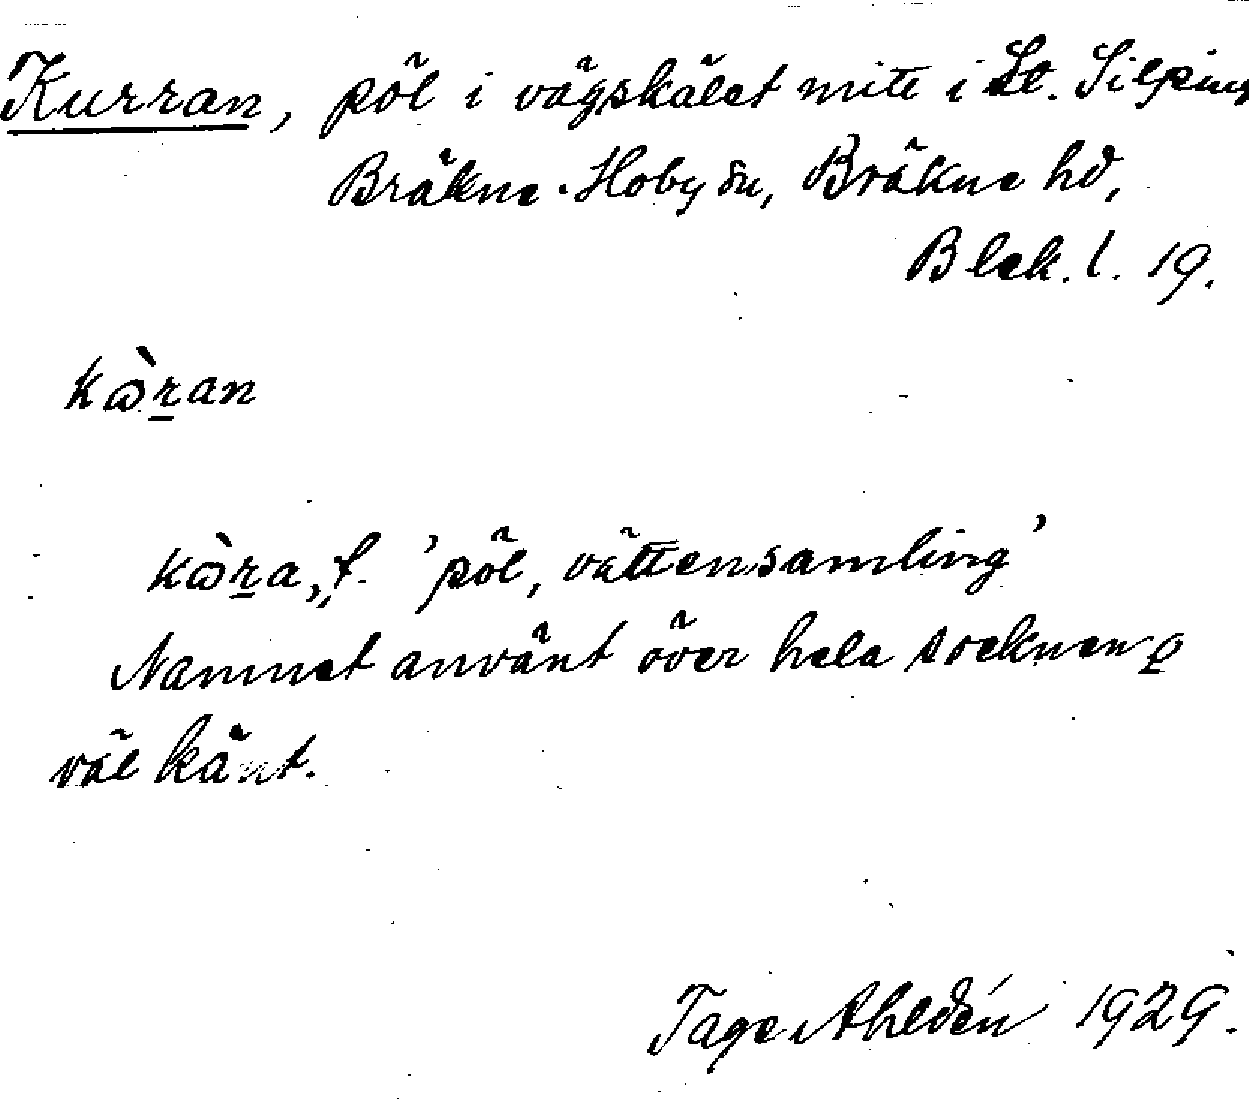 Kurran, pöl i vägskälet mitt i St. Silpinge
Bräkne-Hoby sn, Bräkne hd,
Blek. l. 19.
kòr̲an
kòr̲a, f. 'pöl, vattensamling'
Namnet använt över hela socknen o
väl känt.
Tage Ahldén 1929.